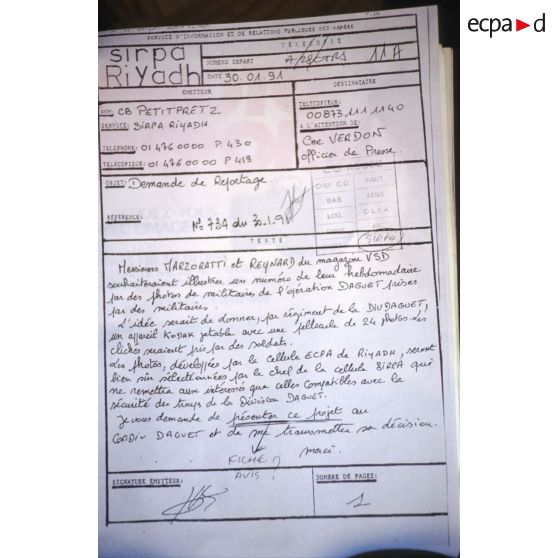 ecpa▶d
SERVICE D'INFORMATION ET DE RELATIONS PUBLIQUES DES ARMEES
sirpa
Riyadh
TELECOPIE
NUMERO DEPART
11A
DATE 30.01.91
EMETTEUR
DESTINATAIRE
NOM: CB PETITPRETZ
SERVICE: SIRPA RIYADH
TELEPHONE: 01 476 0000 P 430
TELECOPIEUR: 01 476 0000 P 419
TELECOPIEUR:
00873 111 1140
A L'ATTENTION DE:
Cne VERDON
officier de Presse.
OBJET: Demande de Reportage
REFERENCE:
N° 734 du 30.1.91
CHEF C.O.
HAUT
BAS
RENS
LOG.
D.L.F.A
SIRPA
TEXTE
Messieurs MARZORATTI et REYNARD du magazine VSD
souhaiteraient illustrer un numéro de leur hebdomadaire
par des photos de militaires de l'opération DAGUET prises
par des militaires.
L'idée serait de donner, par régiment de la DIVDAGUET,
un appareil KODAK jetable avec une pellicule de 24 photos. Les
clichés seraient pris par des soldats.
Les photos, développées par la cellule ECPA de RIYADH, seront
bien sûr sélectionnées par le chef de la cellule SIRPA qui
ne remettra aux intéressés que celles compatibles avec la
sécurité des troupes de la Division DAGUET.
Je vous demande de présenter ce projet au
COMDIV DAGUET et de me transmettre sa décision.
merci.
FICHE?
AVIS?
SIGNATURE EMETTEUR:
NOMBRE DE PAGES:
1